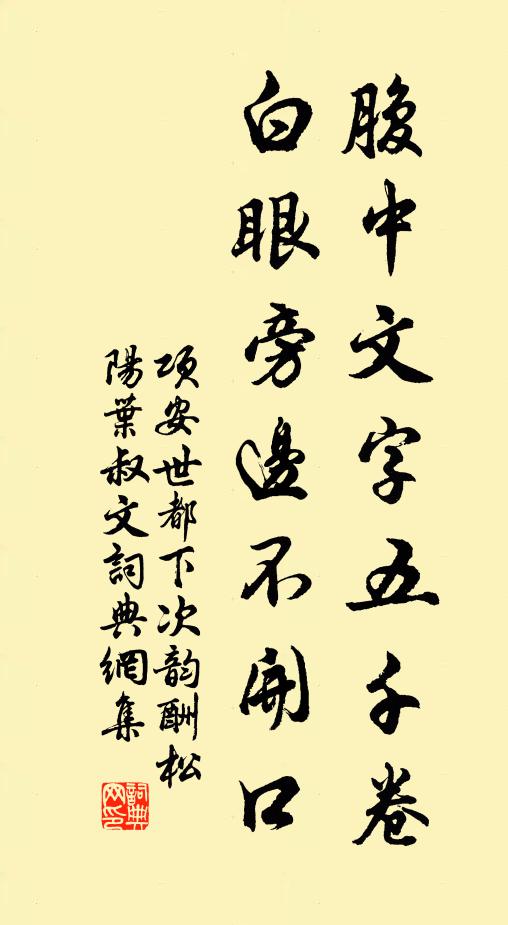 腹中文字五千卷
白眼旁邊不開口
項安世都下次韵酬松
陽葉叔文詞典網集
詞典
网印